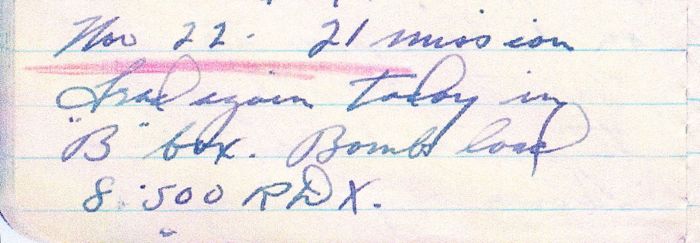 Nov 22. 21 mission
Lead again today in
"B" box. Bombs load
8.500 RDX.